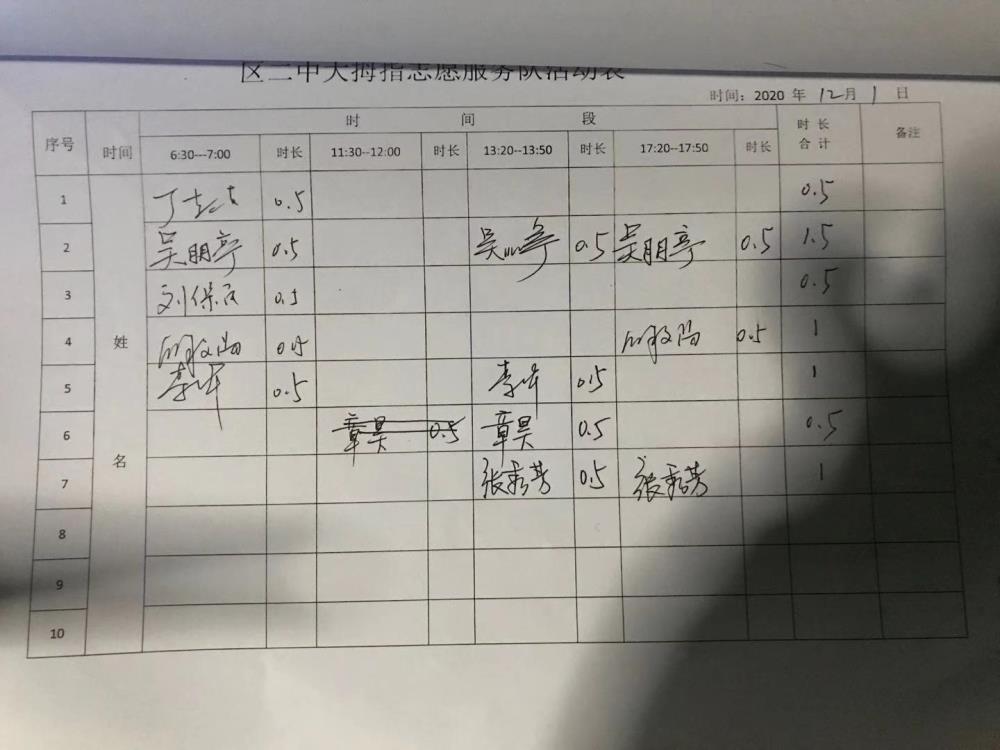 区二中大拇指志愿服务队活动表
时间：2020 年 12月 1 日
序号 时间 时 间 段 时 长 合 计 备注
6:30---7:00 时长 11:30--12:00 时长 13:20--13:50 时长 17:20--17:50 时长
姓 名
1 0.5 0.5
2 吴朋亭 0.5 吴 亭 0.5 吴朋亭 0.5 1.5
3 刘保 0.5 0.5
4 0.5 0.5 1
5 李 0.5 李 0.5 1
6 章昊 0.5 章昊 0.5 0.5
7 张秀芳 0.5 张秀芳 1
8
9
10